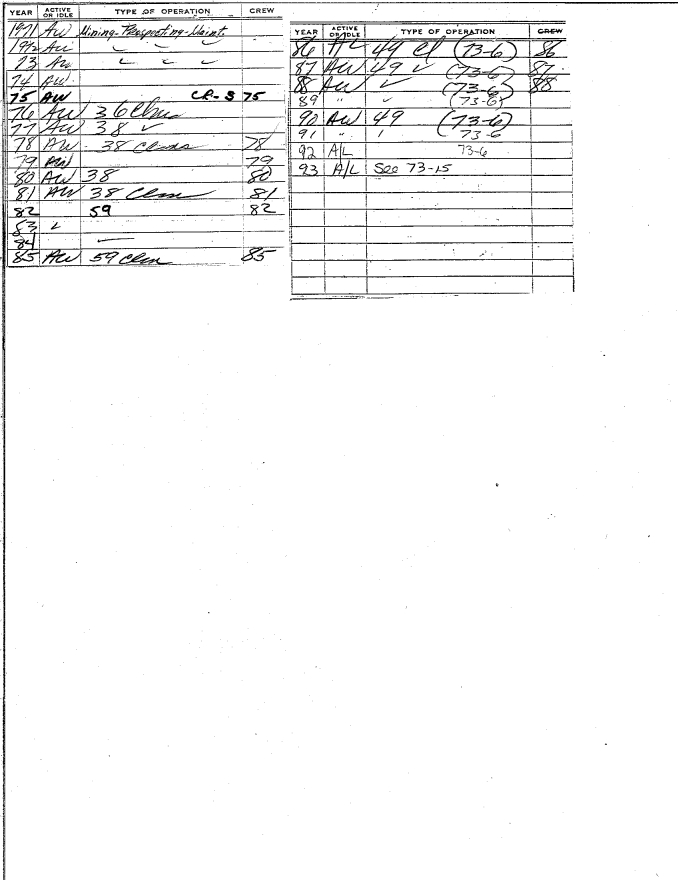 YEAR ACTIVE OR IDLE TYPE OF OPERATION CREW
1971 AW Mining-Prospecting-Maint.
1972 AW ✓ ✓ ✓
73 AW ✓ ✓ ✓
74 AW
75 AW CR-S 75
76 AW 36 Clms
77 AW 38 ✓
78 AW 38 Clms 78
79 AW 79
80 AW 38 80
81 AW 38 Clms 81
82 59 82
83 ✓
84 —
85 AW 59 Clm 85
YEAR ACTIVE OR IDLE TYPE OF OPERATION CREW
86 AL 49 Cl (73-6) 86
87 AW 49 ✓ (73-6) 87
88 AW ✓ (73-6) 88
89 " ✓ (73-6)
90 AW 49 (73-6)
91 " ' 73-6
92 A/L 73-6
93 A/L See 73-15